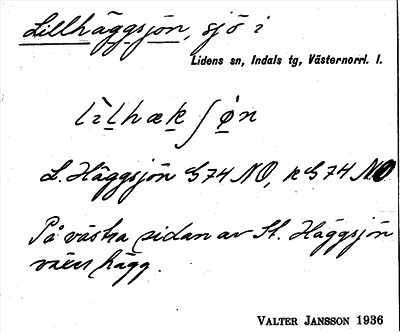 Lillhäggsjön, sjö i
Lidens sn, Indals tg, Västernorrl. l.
lìlhækʃøn
L. Häggsjön G74 NO, kG74 NO
På västra sidan av St. Häggsjön
växer hägg.
VALTER JANSSON 1936